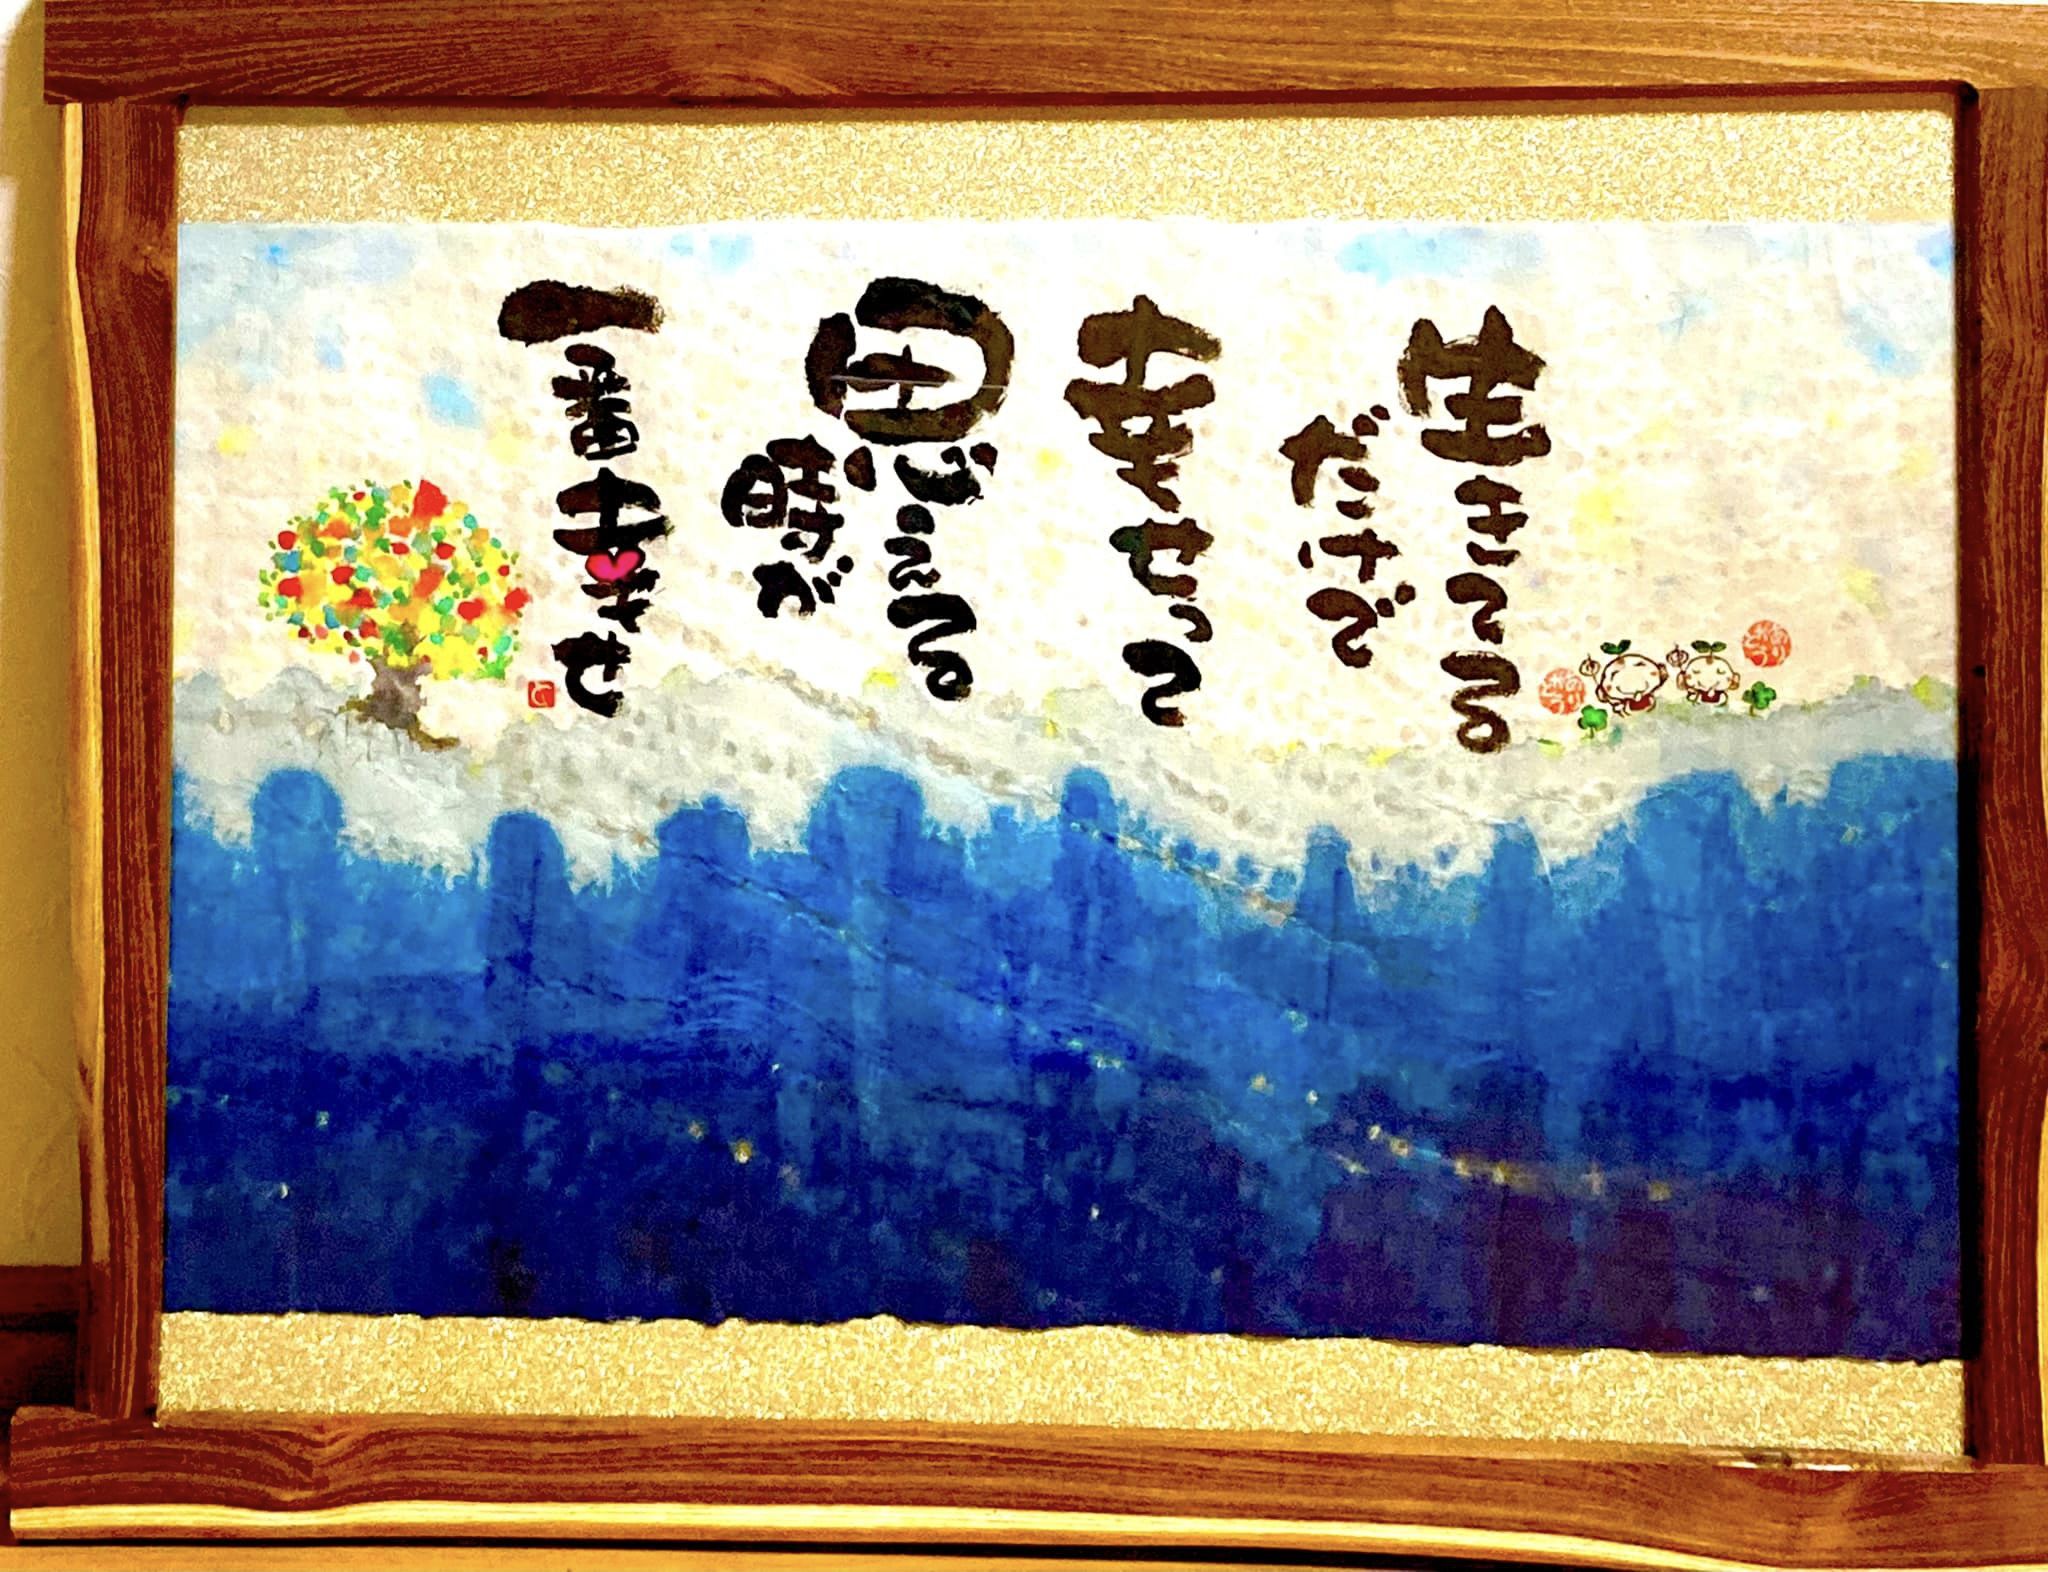 生きてる
だけで
幸せって
思える
時が
一番幸せ